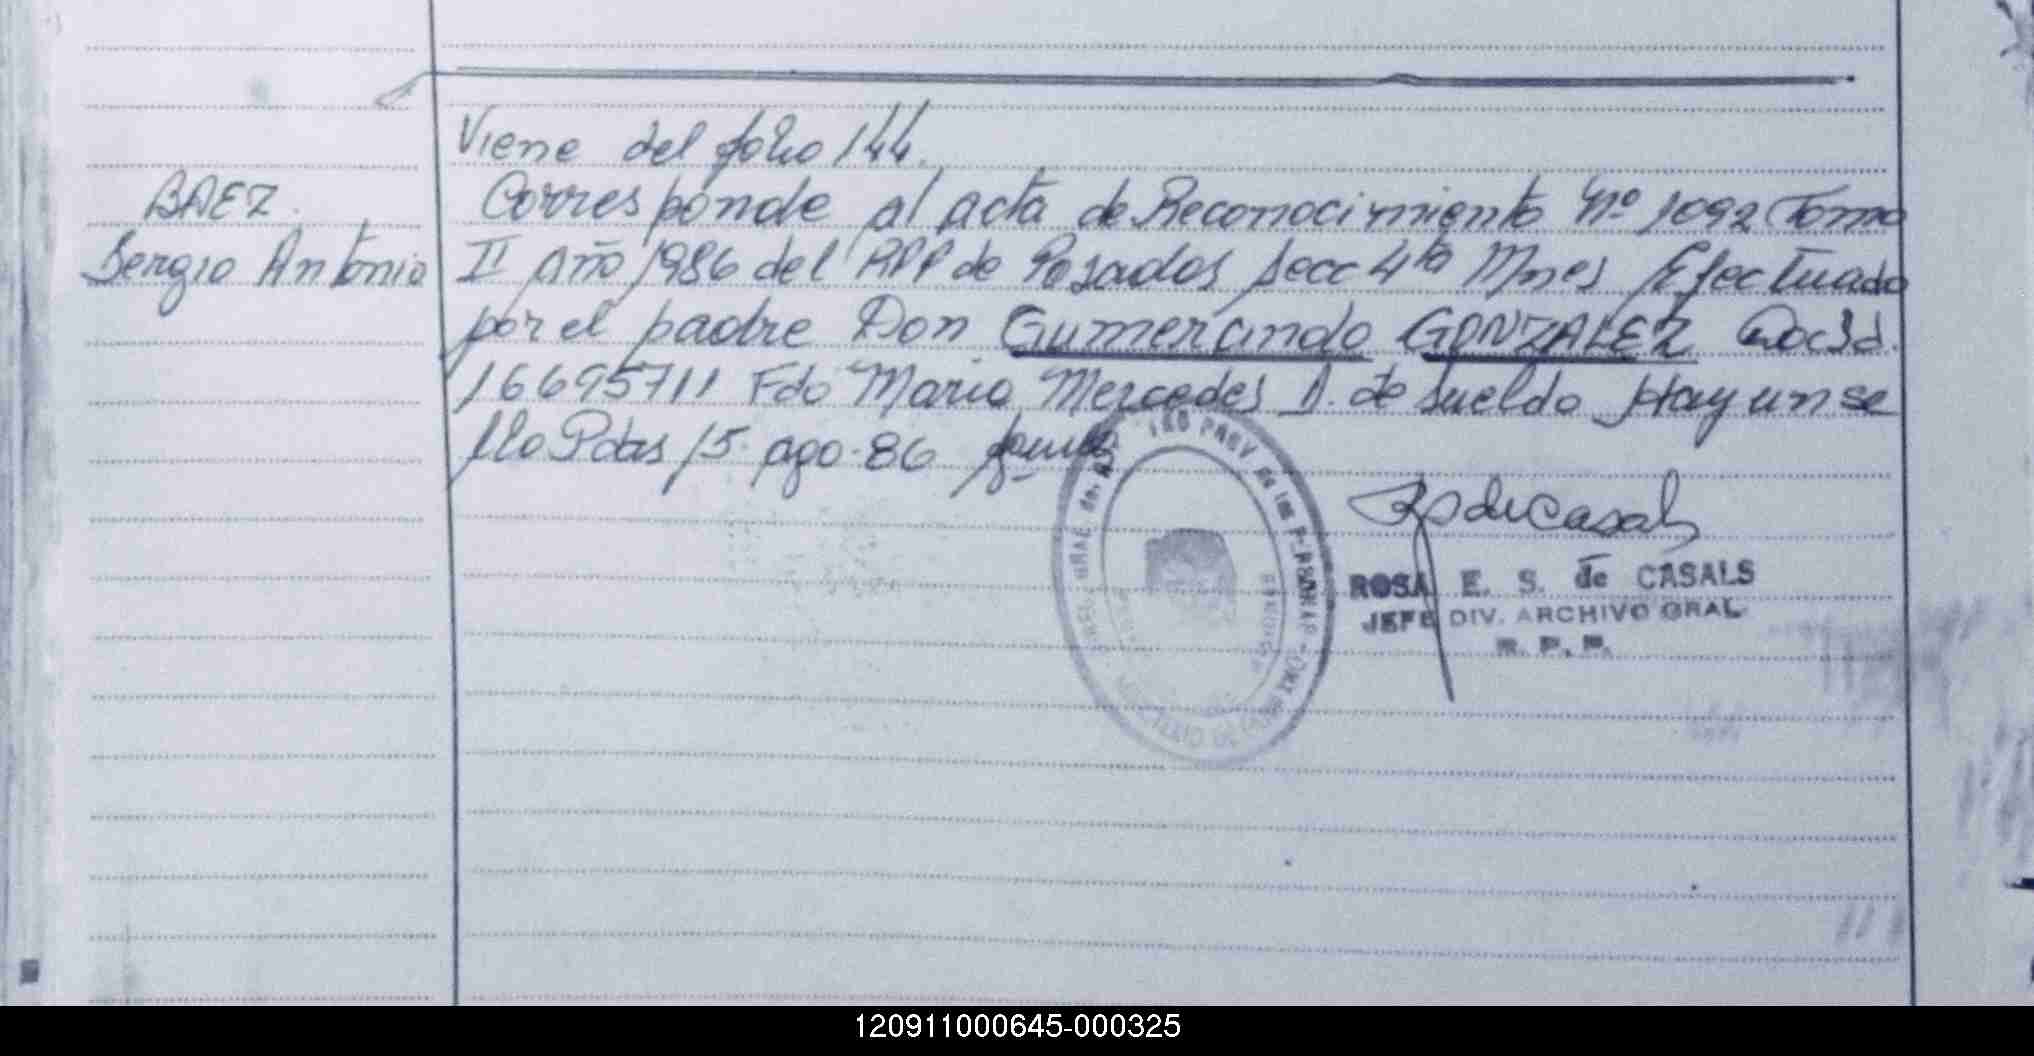 Viene del folio 144.
BAEZ.
Sergio Antonio
Corresponde al acta de Reconocimiento Nº 1092 Tomo
II Año 1986 del RPP de Posadas secc 4ta Mnes Efectuado
por el padre Don Gumercindo GONZALEZ Doc Id.
16695711 Fdo Maria Mercedes D. de Sueldo Hay un se
llo Pdas 15 ago. 86
ROSA E. S. de CASALS
JEFE DIV. ARCHIVO GRAL
R. P. P.
120911000645-000325